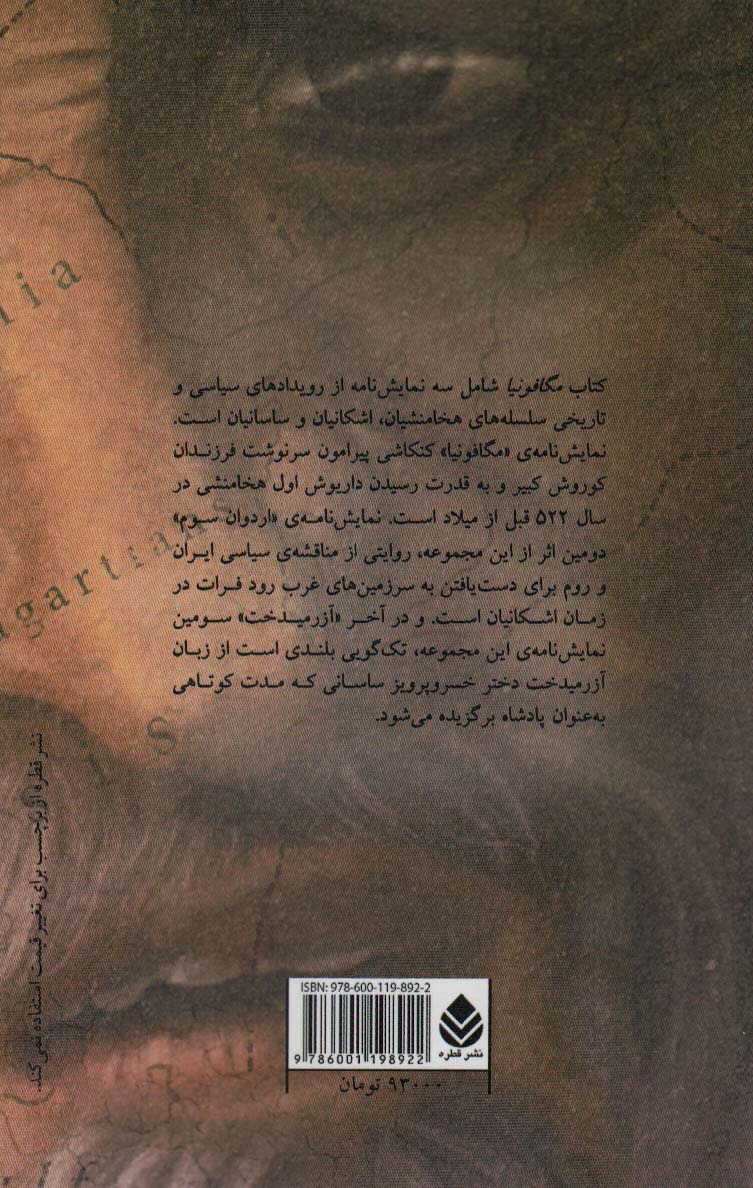 کتاب مگافونیا شامل سه نمایش‌نامه از رویدادهای سیاسی و
تاریخی سلسله‌های هخامنشیان، اشکانیان و ساسانیان است.
نمایش‌نامه‌ی «مگافونیا» کنکاشی پیرامون سرنوشت فرزندان
کوروش کبیر و به قدرت رسیدن داریوش اول هخامنشی در
سال ۵۲۲ قبل از میلاد است. نمایش‌نامه‌ی «اردوان سوم»
دومین اثر از این مجموعه، روایتی از مناقشه‌ی سیاسی ایران
و روم برای دست‌یافتن به سرزمین‌های غرب رود فرات در
زمان اشکانیان است. و در آخر «آزرمیدخت» سومین
نمایش‌نامه‌ی این مجموعه، تک‌گویی بلندی است از زبان
آزرمیدخت دختر خسروپرویز ساسانی که مدت کوتاهی
به‌عنوان پادشاه برگزیده می‌شود.
lia
agartians
is
نشر قطره از برچسب برای تغییر قیمت استفاده نمی‌کند.
ISBN: 978-600-119-892-2
9 786001 198922
نشر قطره
۹۳۰۰۰ تومان